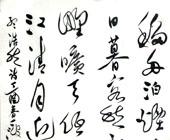 移舟泊煙
日暮客愁
野曠天低
江清月近
孟浩然詩